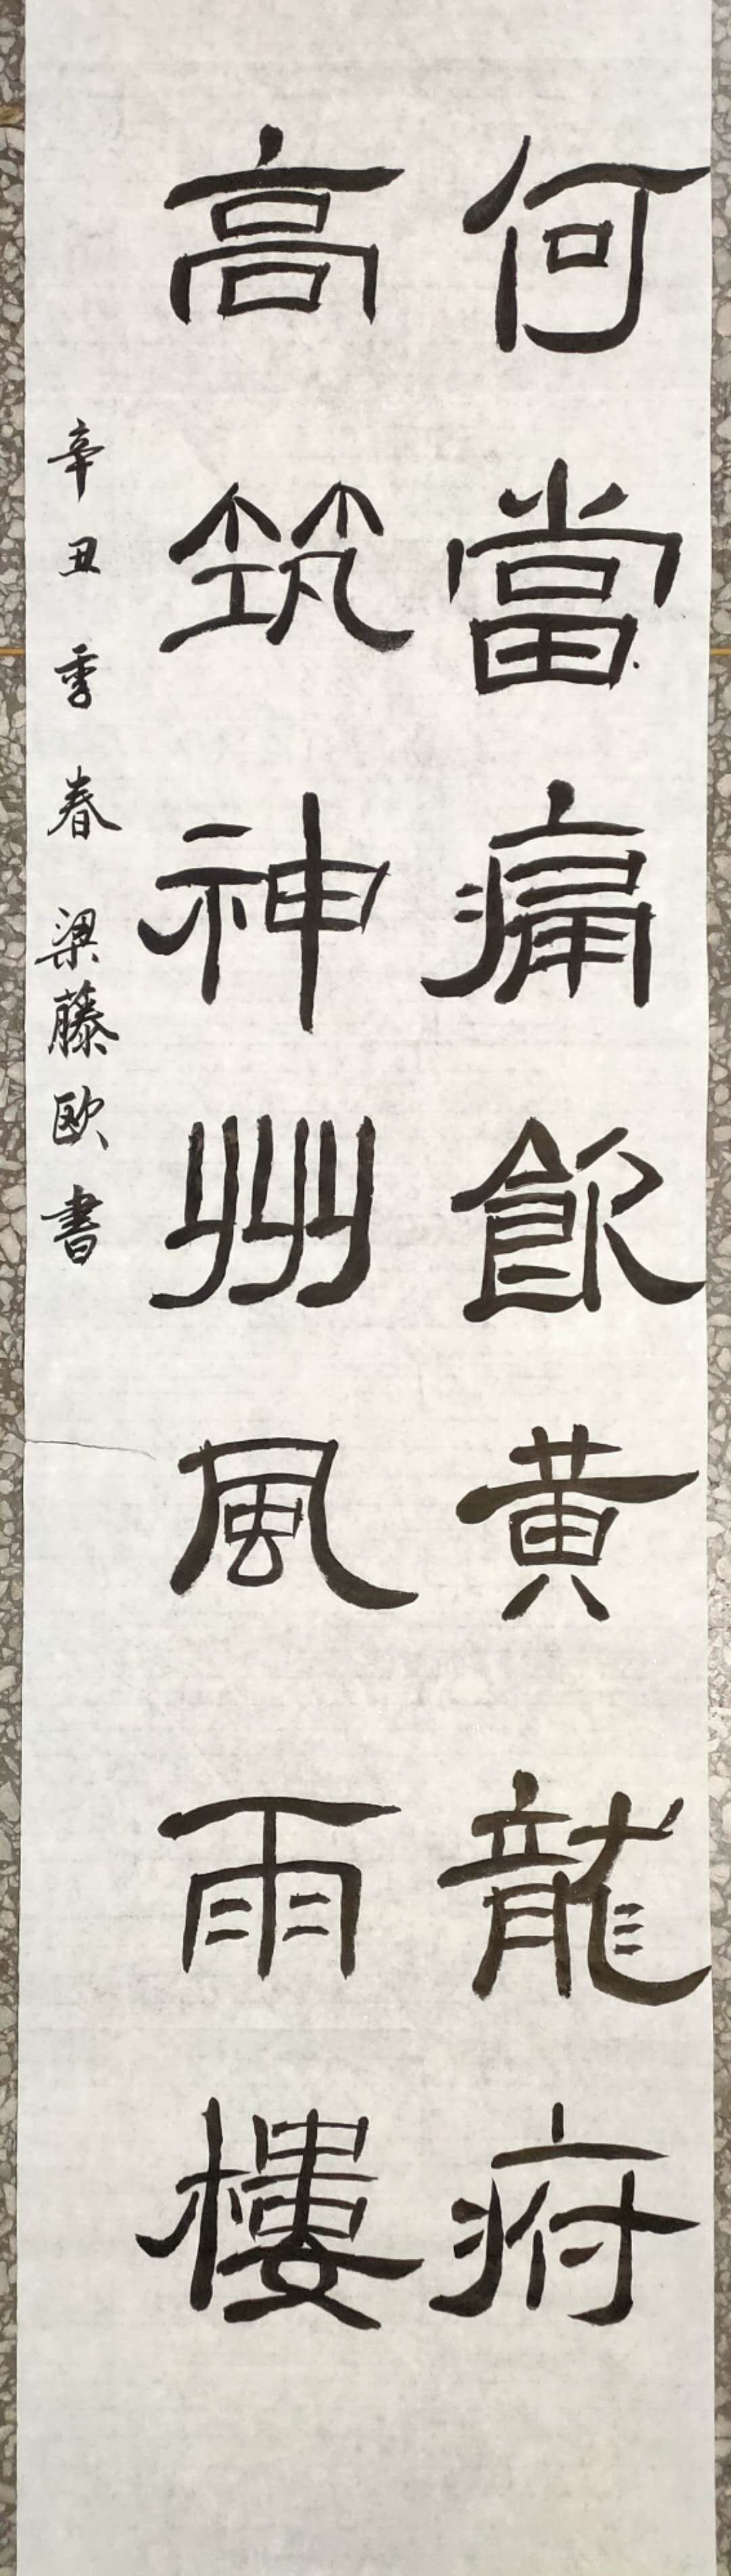 何當痛飲黄龍府
高筑神州風雨樓
辛丑季春梁藤欧書